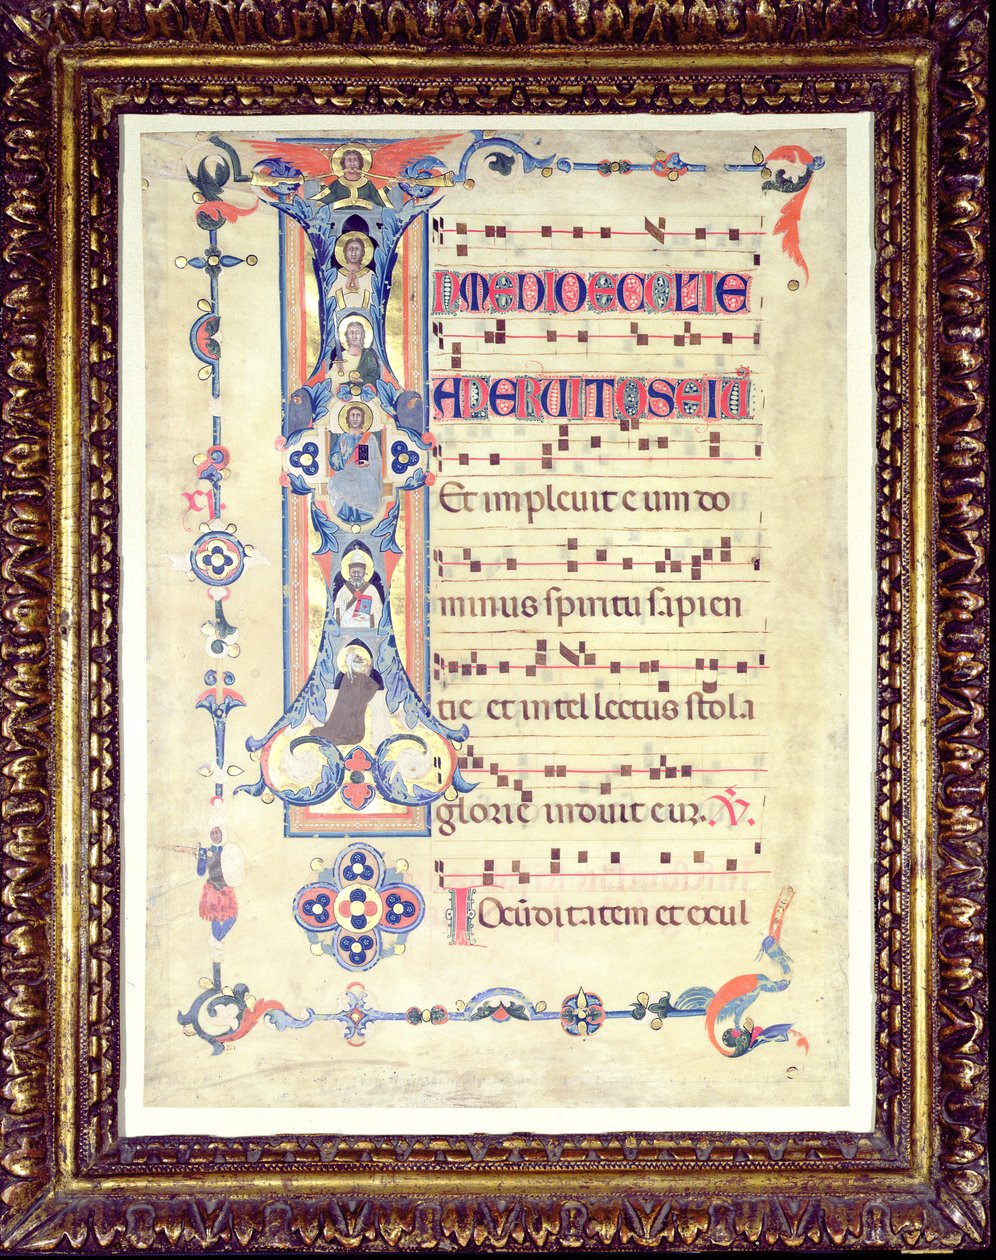 I
MEDIO ECCLIE
APERUIT OS EIU
Et implevit eum do
xi
minus spiritu sapien
tie et intellectus stola
glorie induit eum. V.
Iocunditatem et exul